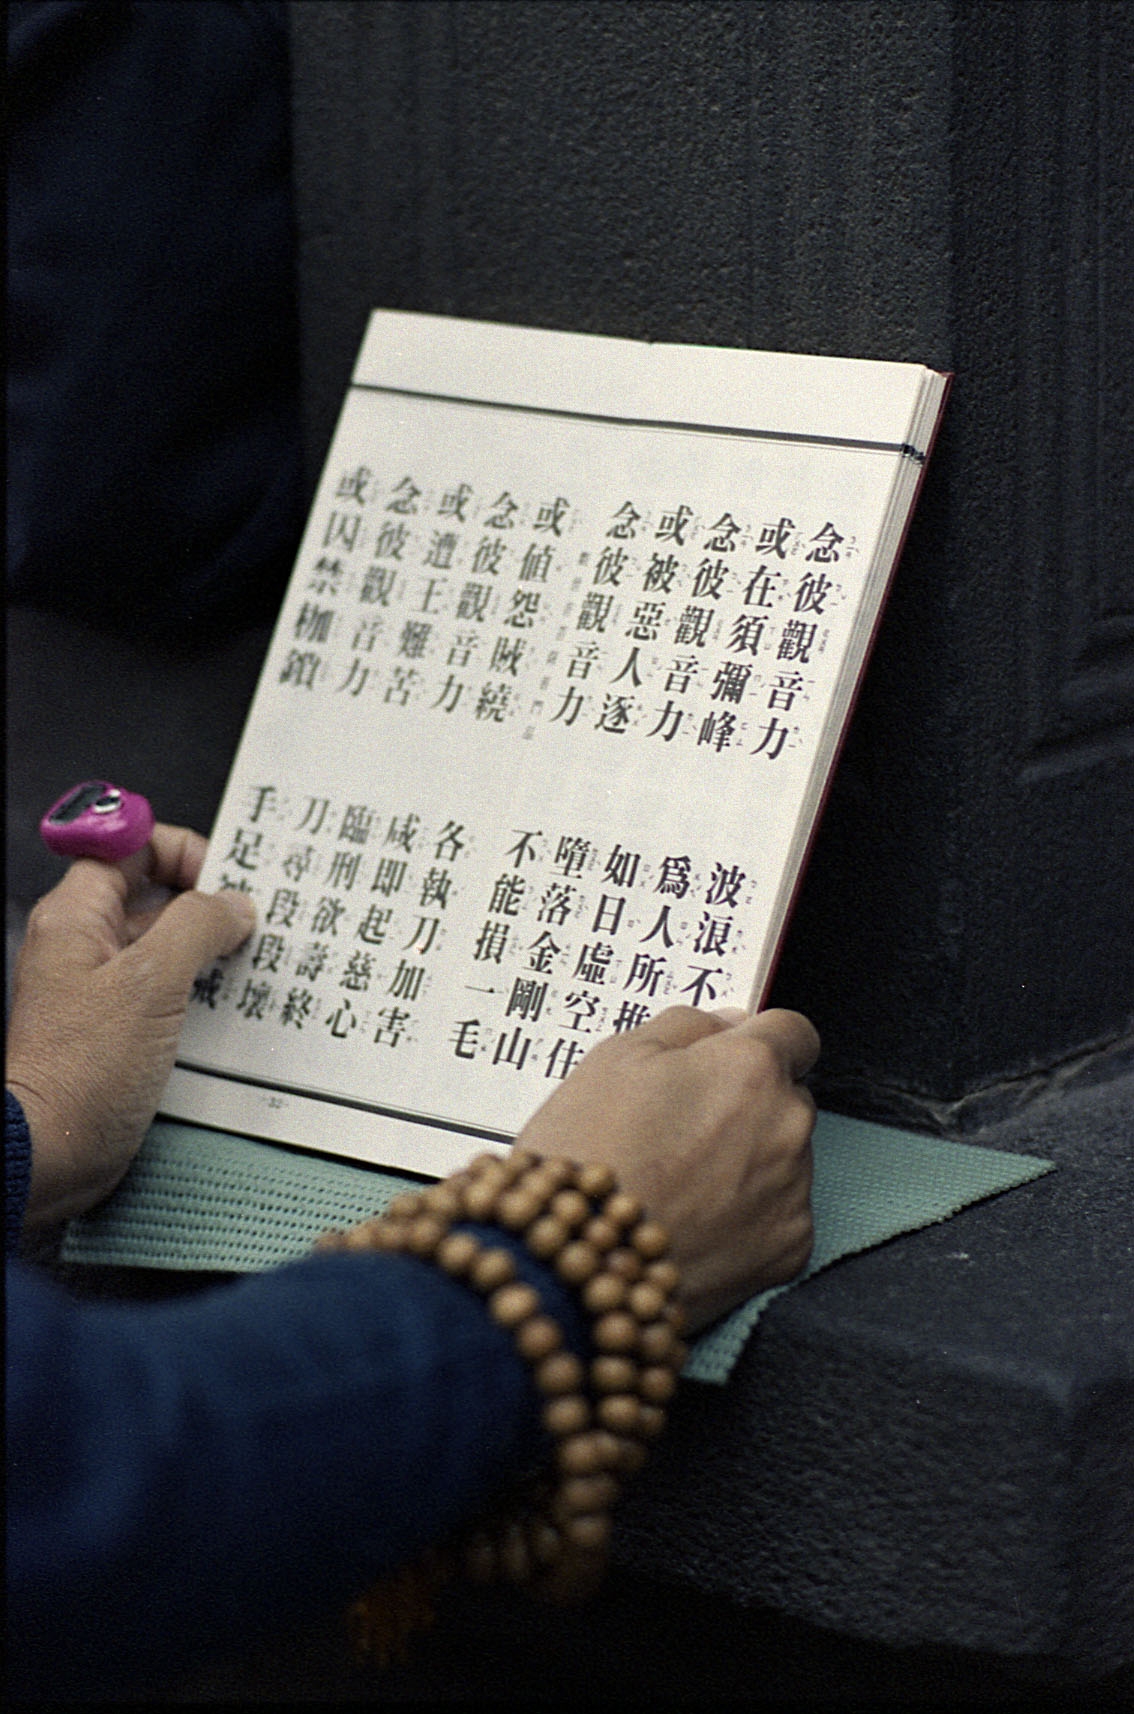 念彼觀音力 波浪不
或在須彌峰 爲人所推
念彼觀音力 如日虛空住
或被惡人逐 墮落金剛山
念彼觀音力 不能損一毛
或值怨賊繞 各執刀加害
念彼觀音力 咸即起慈心
或遭王難苦 臨刑欲壽終
念彼觀音力 刀尋段段壞
或囚禁枷鎖 手足被械
-32-